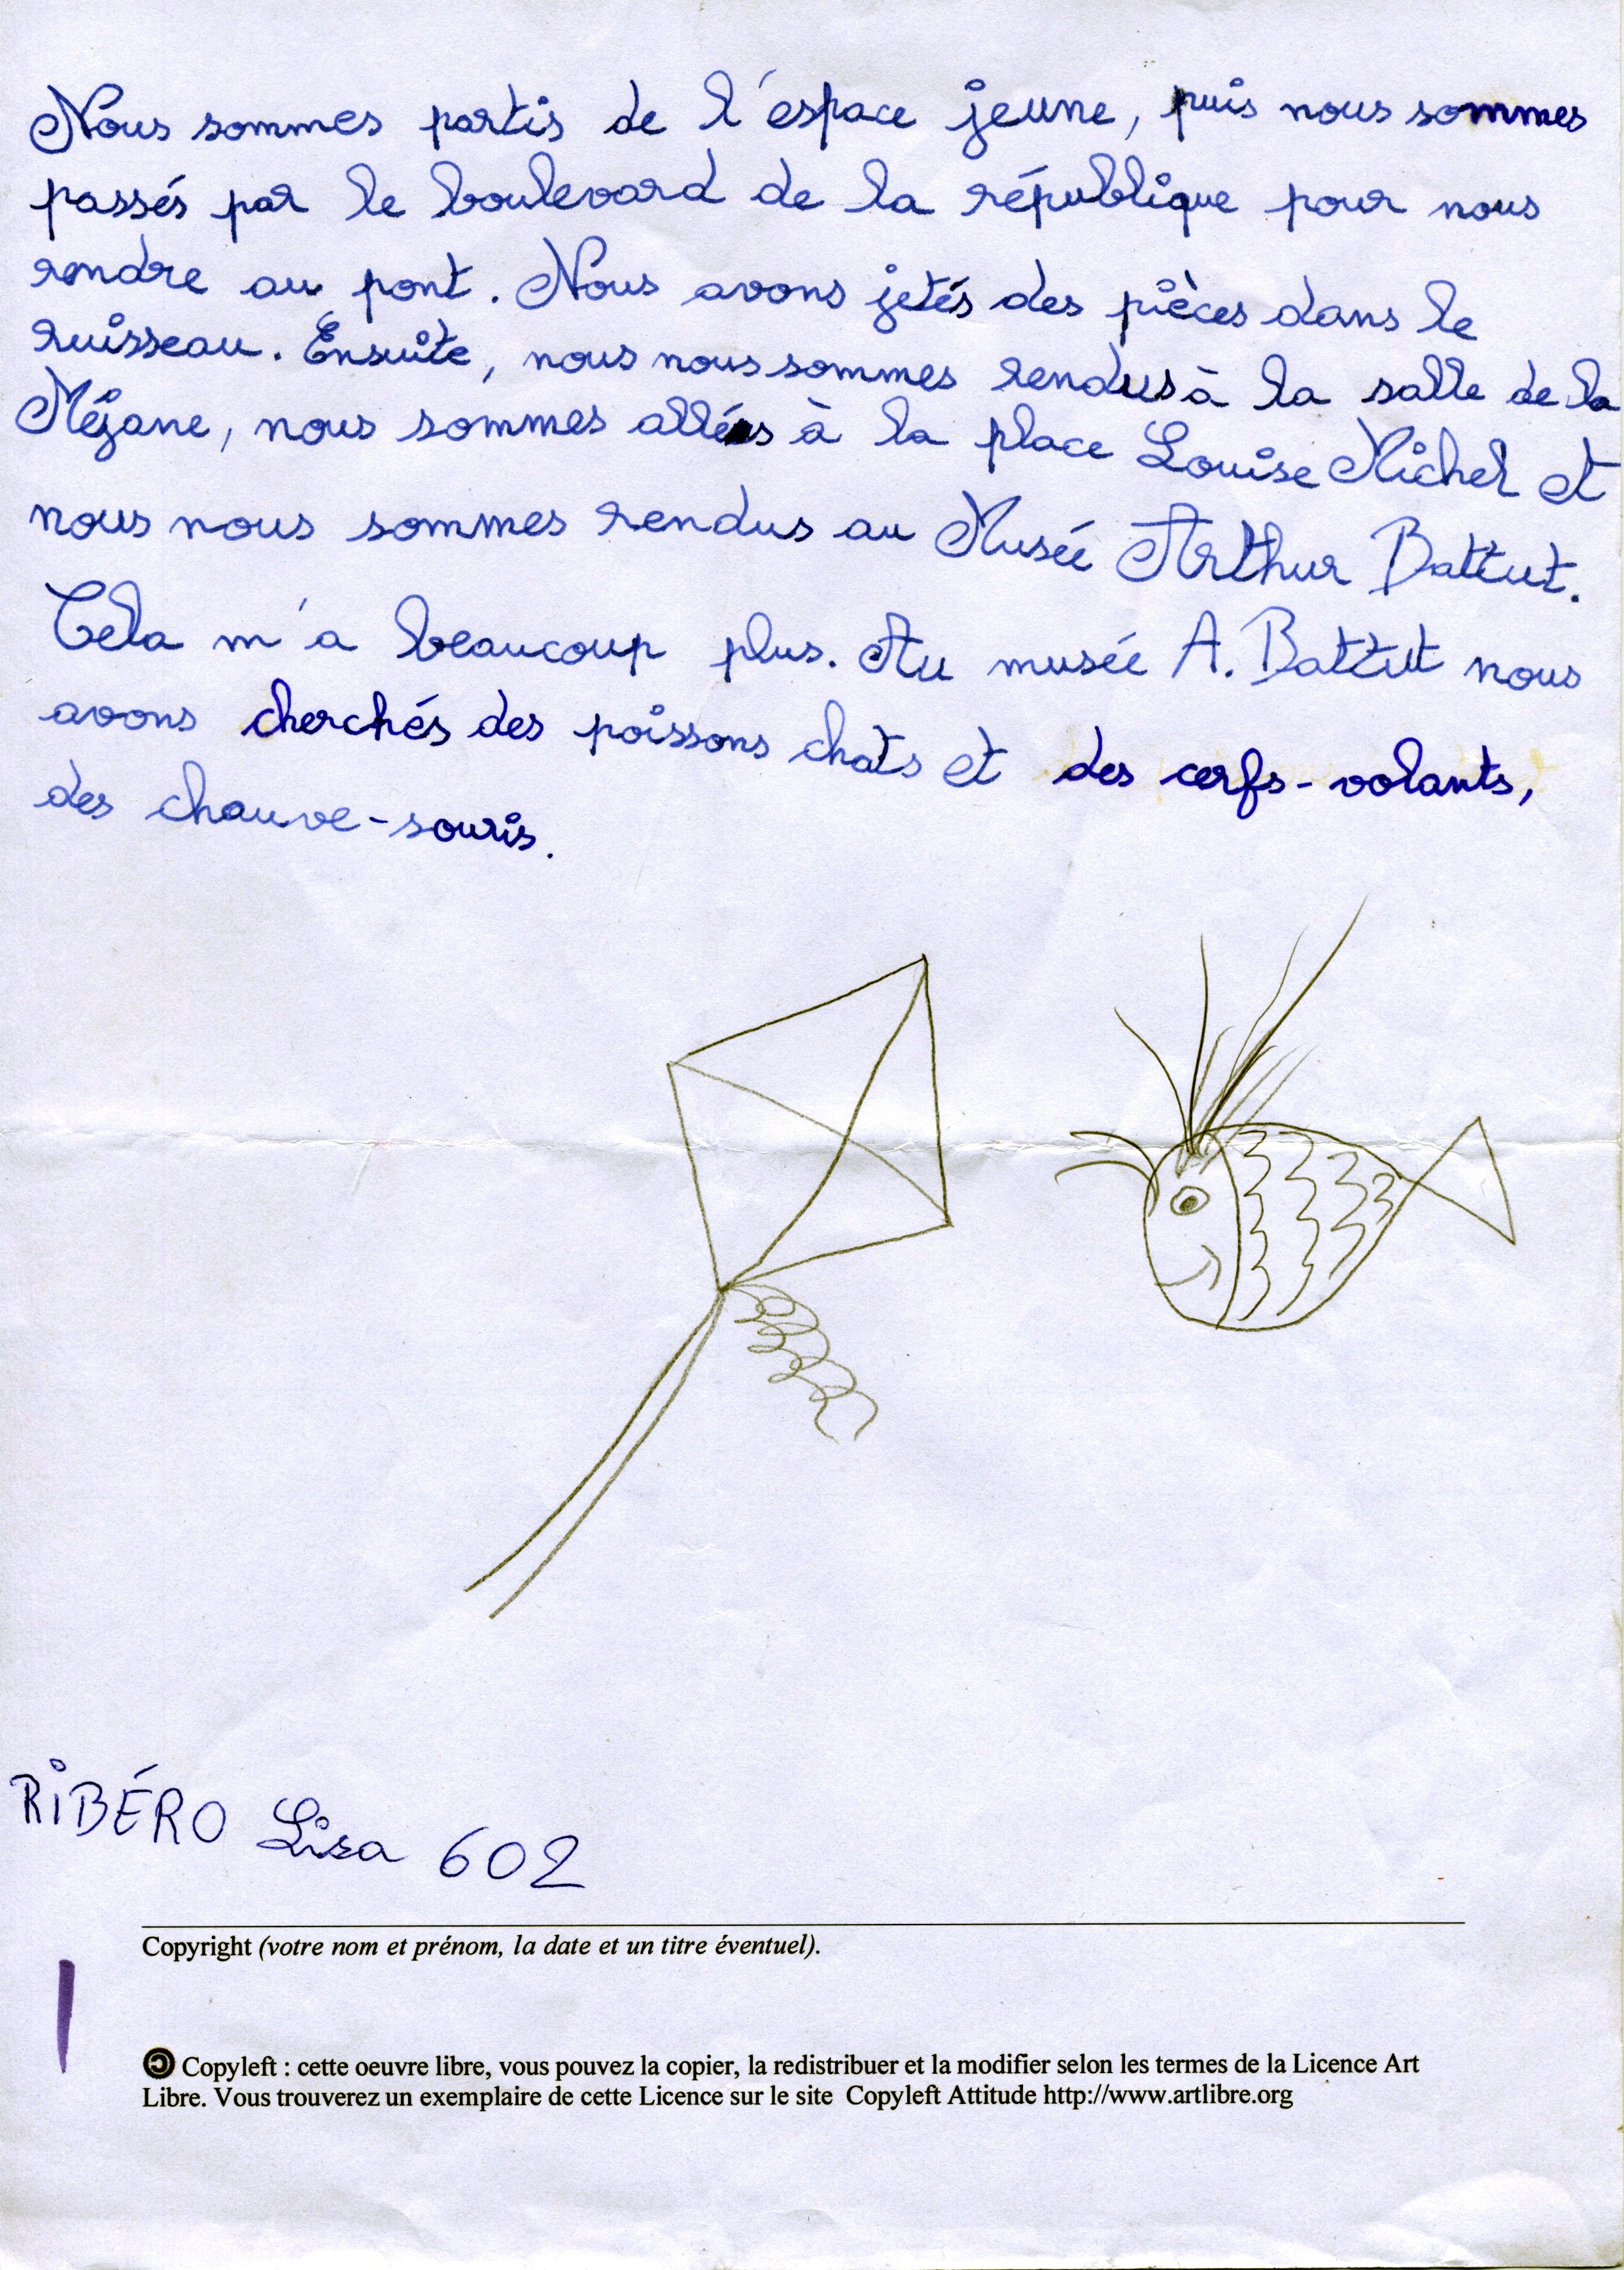 Nous sommes partis de l'espace jeune, puis nous sommes
passés par le boulevard de la république pour nous
rendre au pont. Nous avons jetés des pièces dans le
ruisseau. Ensuite, nous nous sommes rendus à la salle de la
Méjane, nous sommes allés à la place Louise Michel et
nous nous sommes rendus au Musée Arthur Battut.
Cela m'a beaucoup plus. Au musée A. Battut nous
avons cherchés des poissons chats et des cerfs-volants,
des chauve-souris.
RIBÉRO Lisa 602
Copyright (votre nom et prénom, la date et un titre éventuel).
Copyleft : cette oeuvre libre, vous pouvez la copier, la redistribuer et la modifier selon les termes de la Licence Art
Libre. Vous trouverez un exemplaire de cette Licence sur le site Copyleft Attitude http://www.artlibre.org